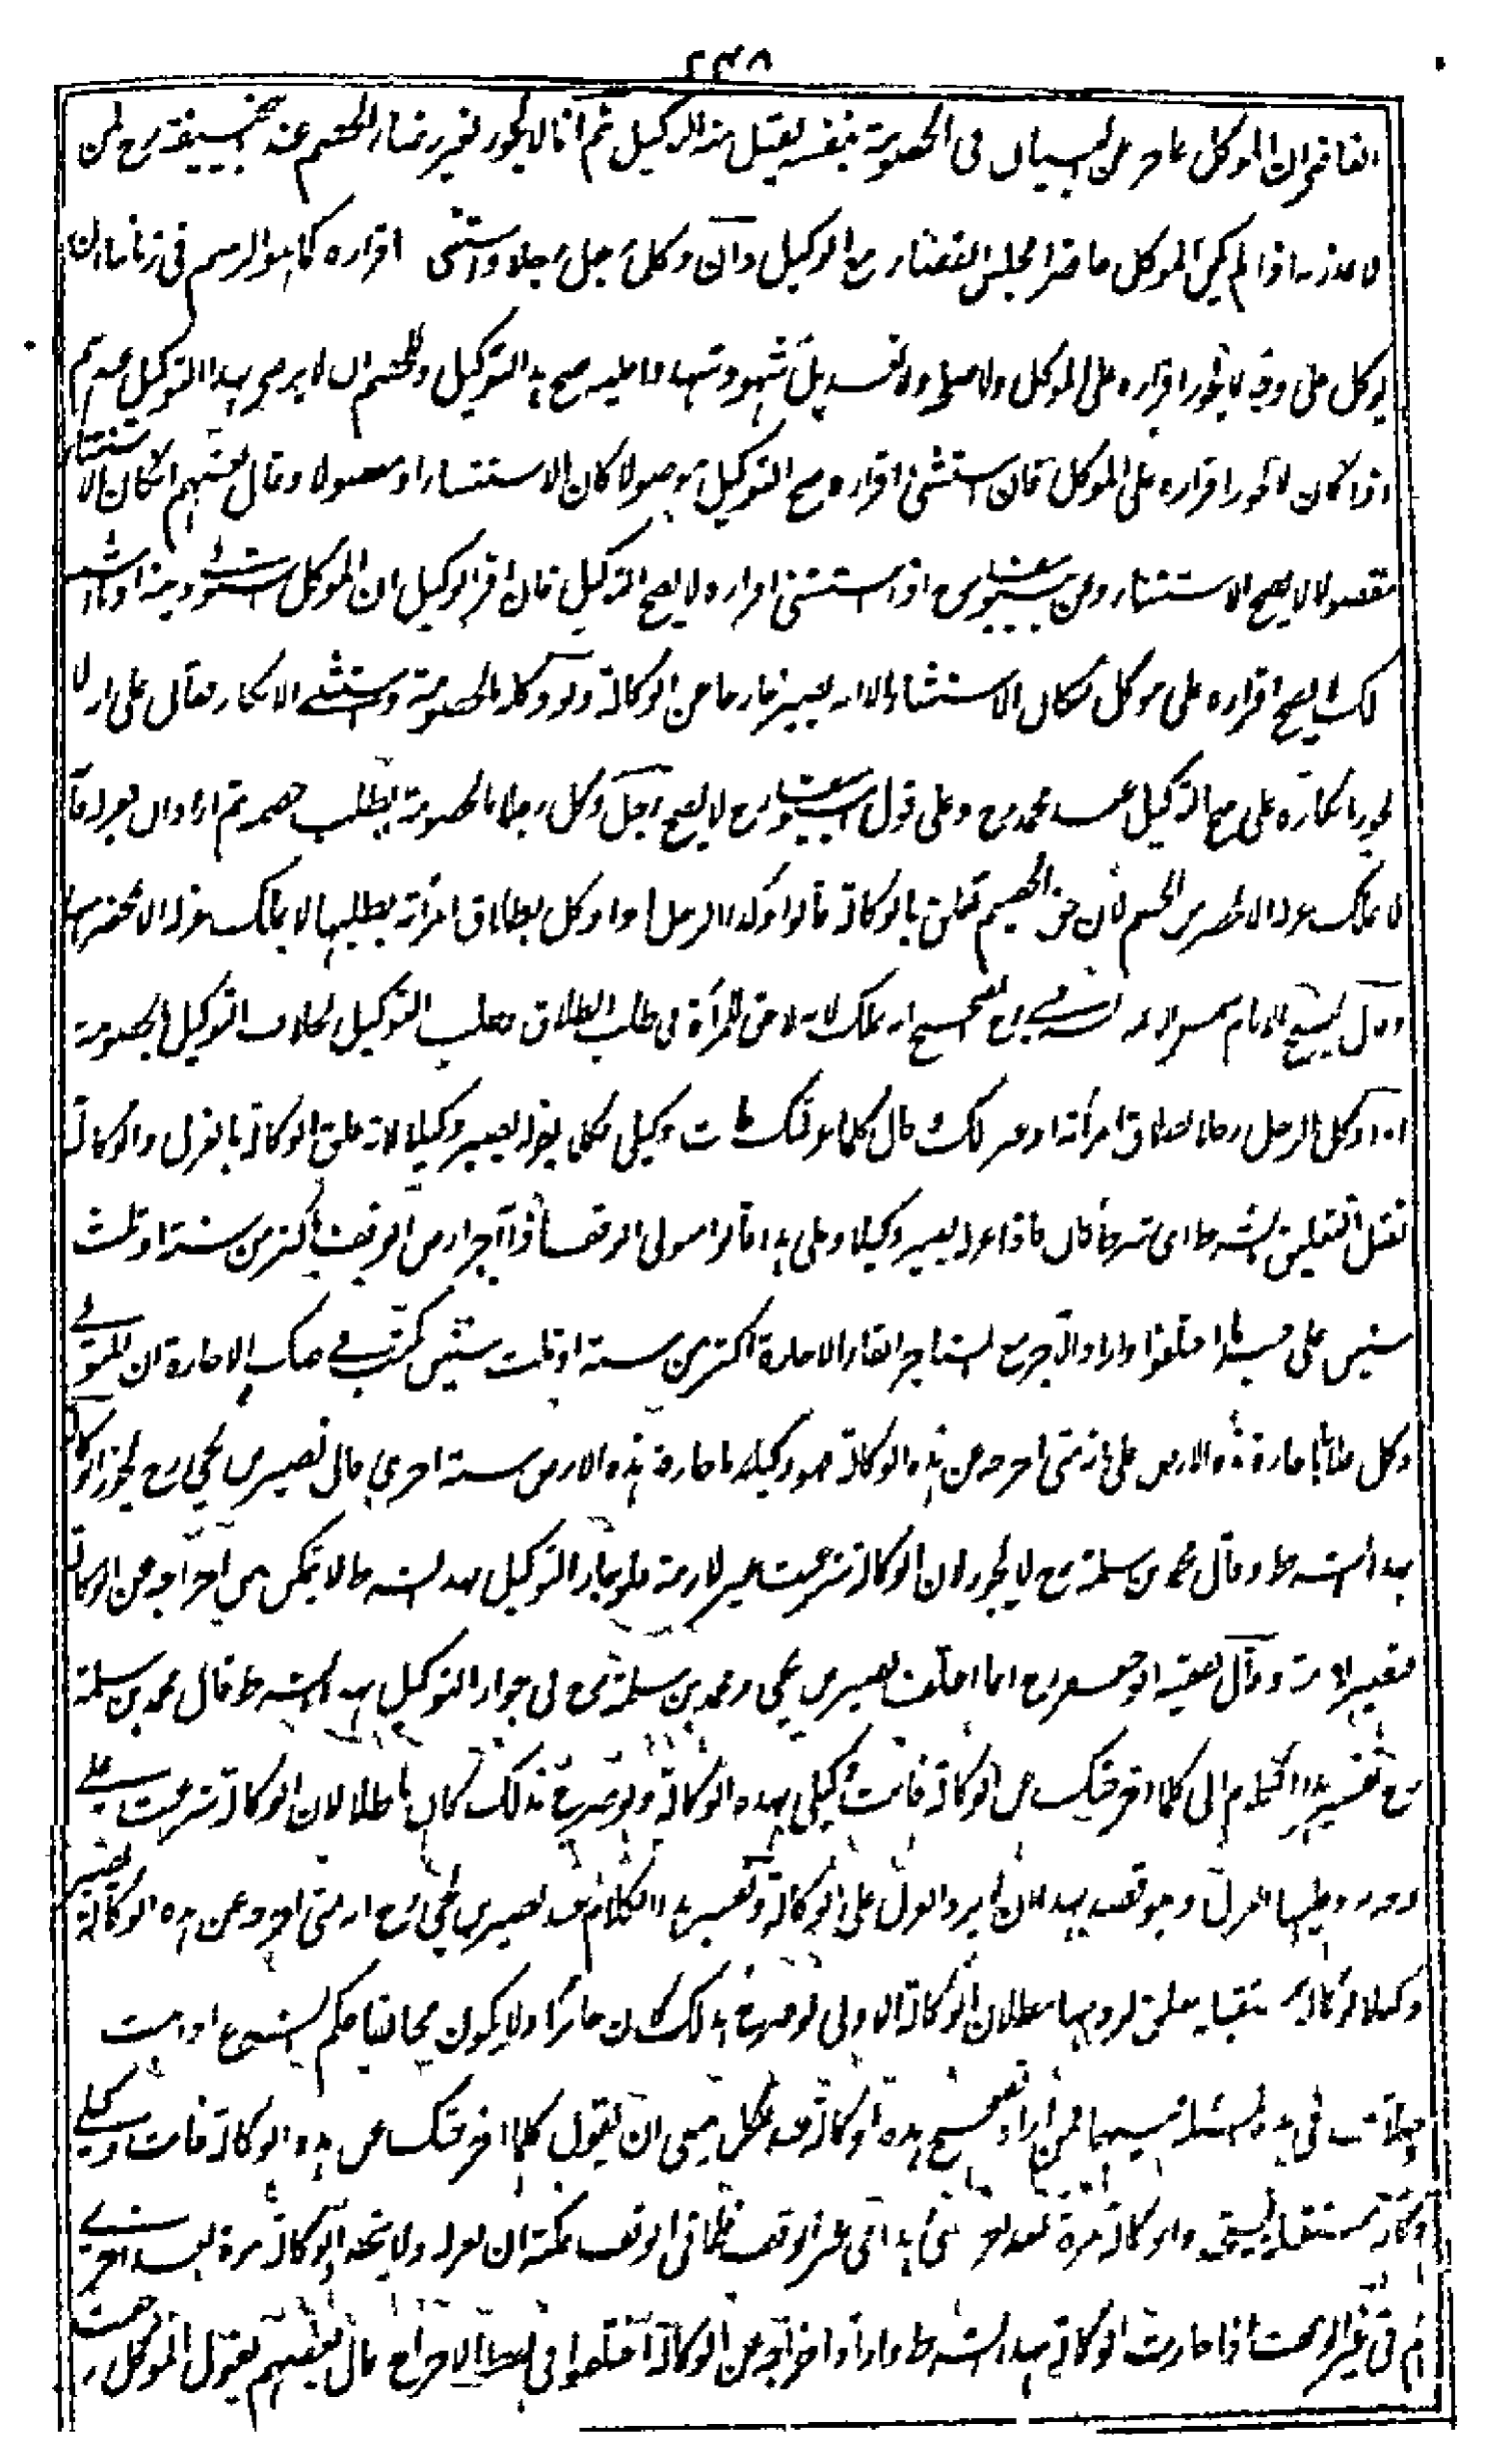 ٢٣٨
القاضي ان الموكل عاجز عن البيان في الخصومة بنفسه يقبل منه التوكيل ثم انما لا يجوز بغير رضاء الخصم عند ابي حنيفة رح لمن
لا عذر به اذا لم يكن الموكل حاضرا مجلس القضاء مع الوكيل وان وكل رجل رجلا واستثنى اقراره كما هو الرسم في زماننا ان
يوكل على وجه لا يجوز اقراره على الموكل ولا صلحه ولا تعديل شهود شهدوا عليه صح هذا التوكيل وللخصم ان لا يرضى بهذا التوكيل
اذا كان لا يجوز اقراره على الموكل فان استثنى اقراره صح التوكيل موصولا كان الاستثناء او مفصولا وقال بعضهم ان كان الاستثناء
مفصولا لا يصح الاستثناء وعن ابي يوسف رح اذا استثنى اقراره لا يصح التوكيل فان اقر الوكيل ان الموكل استوفى دينه او
لا يصح اقراره على موكله لمكان الاستثناء الا انه يصير خارجا عن الوكالة ولو وكله بالخصومة واستثنى الانكار فقال على ان لا
يجوز انكاره علي صح التوكيل عند محمد رح وعلى قول ابي يوسف رح لا يصح رجل وكل رجلا بالخصومة بطلب خصمه ثم اراد ان يعزله
لا يملك عزله الا بمحضر من الخصم لان حق الخصم تعلق بالوكالة قالوا وكذا الرجل اذا وكل بطلاق امرأته بطلبها لا يملك عزله الا بمحضر منها
وقال الشيخ الامام شمس الائمة السرخسي رح الصحيح انه يملك لانه لا حق للمرأة في طلب الطلاق وطلب التوكيل بخلاف التوكيل بالخصومة
اذا وكل الرجل رجلا بطلاق امرأته او غير ذلك وقال كلما عزلتك فانت وكيلي فكلما يعزله يصير وكيلا لانه علق الوكالة بالعزل والوكالة
تقبل التعليق بالشرط اي شرط كان فاذا عزله يصير وكيلا وعلى هذا قالوا متولي الوقف اذا آجر ارض الوقف اكثر من سنة او ثلث
سنين على حسب ما اختلفوا واراد الآجر مع المستاجر ابقاء الاجارة اكثر من سنة او ثلث سنين كتب في صك الاجارة ان المتولي
وكل فلانا باجارة هذه الارض على انه متى اخرجه عن هذه الوكالة فهو وكيله باجارة هذه الارض سنة اخرى قال نصير بن يحيى رح يجوز الوكالة
بهذا الشرط وقال محمد بن سلمة رح لا يجوز لان الوكالة شرعت غير لازمة فلو جاز التوكيل بهذا الشرط لا يتمكن من اخراجه عن الوكالة
فيصير لازمة وقال الفقيه ابو جعفر رح انما اختلف نصير بن يحيى ومحمد بن سلمة رح في جواز التوكيل بهذا الشرط فقال محمد بن سلمة
رح تفسير هذا الكلام اي كلما اخرجتك عن الوكالة فانت وكيلي بهذه الوكالة ولو صرح بذلك كان باطلا لان الوكالة شرعت على
وجه يرد عليها العزل وهو قصد بهذا ان لا يرد العزل على الوكالة وتفسير هذا الكلام عند نصير بن يحيى رح انه متى اخرجه عن هذه الوكالة يصير
وكيلا بوكالة مستقبلة يعلق لزومها ببطلان الوكالة الاولى ولو صرح بذلك كان جائزا ولا يكون مخالفا حكم الشرع اذا ثبت
اختلاف في هذه المسئلة فيهما فمن اراد تصحيح هذه الوكالة عند الكل ينبغي ان يقول كلما اخرجتك عن هذه الوكالة فانت وكيلي
وكالة مستقبلة والوكالة مرة بعد اخرى هذا في غير الوقف فاما في الوقف يمكنه ان يعزله ولا يتجدد الوكالة مرة بعد اخرى
ثم في غير الوقف اذا جازت الوكالة بهذا الشرط واراد اخراجه عن الوكالة اختلفوا في لفظ الاخراج قال بعضهم يقول الموكل رجعت